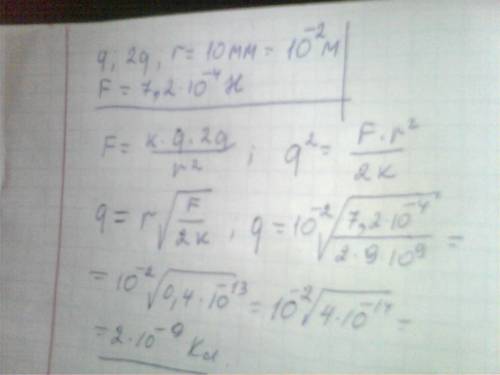 q, 2q, r = 10мм = 10⁻² м
F = 7,2·10⁻⁴ Н
F = k·q·2q / r² ; q² = F·r² / 2k
q = r√(F / 2k), q = 10⁻²√(7,2·10⁻⁴ / 2·9·10⁹) =
= 10⁻²√(0,4·10⁻¹³) = 10⁻²√(4·10⁻¹⁴) =
= 2·10⁻⁹ Кл.